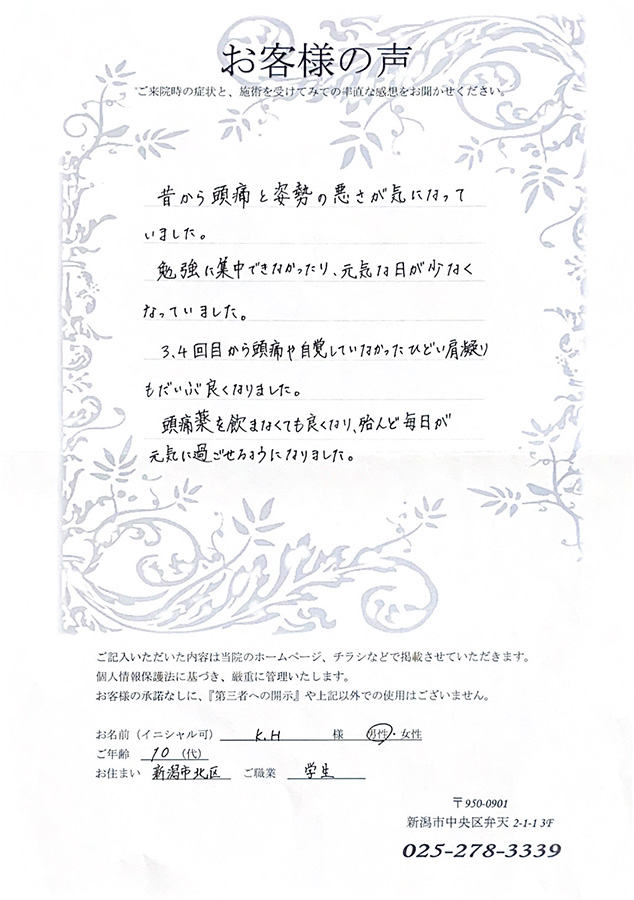 お客様の声
ご来院時の症状と、施術を受けてみての率直な感想をお聞かせください。
昔から頭痛と姿勢の悪さが気になって
いました。
勉強に集中できなかったり、元気な日が少なく
なっていました。
3、4回目から頭痛や自覚していなかったひどい肩凝り
もだいぶ良くなりました。
頭痛薬を飲まなくても良くなり、殆んど毎日が
元気に過ごせるようになりました。
ご記入いただいた内容は当院のホームページ、チラシなどで掲載させていただきます。
個人情報保護法に基づき、厳重に管理いたします。
お客様の承諾なしに、『第三者への開示』や上記以外での使用はございません。
お名前（イニシャル可） K.H 様 男性・女性
ご年齢 10（代）
お住まい 新潟市北区 ご職業 学生
〒950-0901
新潟市中央区弁天 2-1-1 3F
025-278-3339